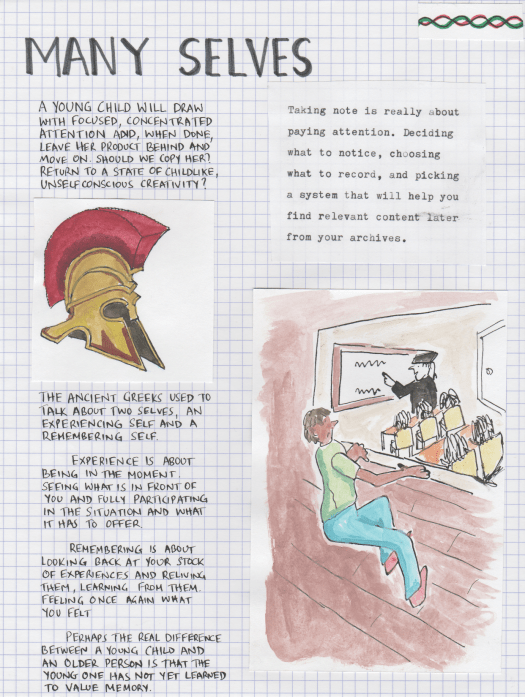 MANY SELVES
A YOUNG CHILD WILL DRAW
WITH FOCUSED, CONCENTRATED
ATTENTION AND, WHEN DONE,
LEAVE HER PRODUCT BEHIND AND
MOVE ON. SHOULD WE COPY HER?
RETURN TO A STATE OF CHILDLIKE,
UNSELFCONSCIOUS CREATIVITY?
Taking note is really about
paying attention. Deciding
what to notice, choosing
what to record, and picking
a system that will help you
find relevant content later
from your archives.
THE ANCIENT GREEKS USED TO
TALK ABOUT TWO SELVES, AN
EXPERIENCING SELF AND A
REMEMBERING SELF.
EXPERIENCE IS ABOUT
BEING IN THE MOMENT.
SEEING WHAT IS IN FRONT OF
YOU AND FULLY PARTICIPATING
IN THE SITUATION AND WHAT
IT HAS TO OFFER.
REMEMBERING IS ABOUT
LOOKING BACK AT YOUR STOCK
OF EXPERIENCES AND RELIVING
THEM, LEARNING FROM THEM.
FEELING ONCE AGAIN WHAT
YOU FELT
PERHAPS THE REAL DIFFERENCE
BETWEEN A YOUNG CHILD AND
AN OLDER PERSON IS THAT THE
YOUNG ONE HAS NOT YET LEARNED
TO VALUE MEMORY.